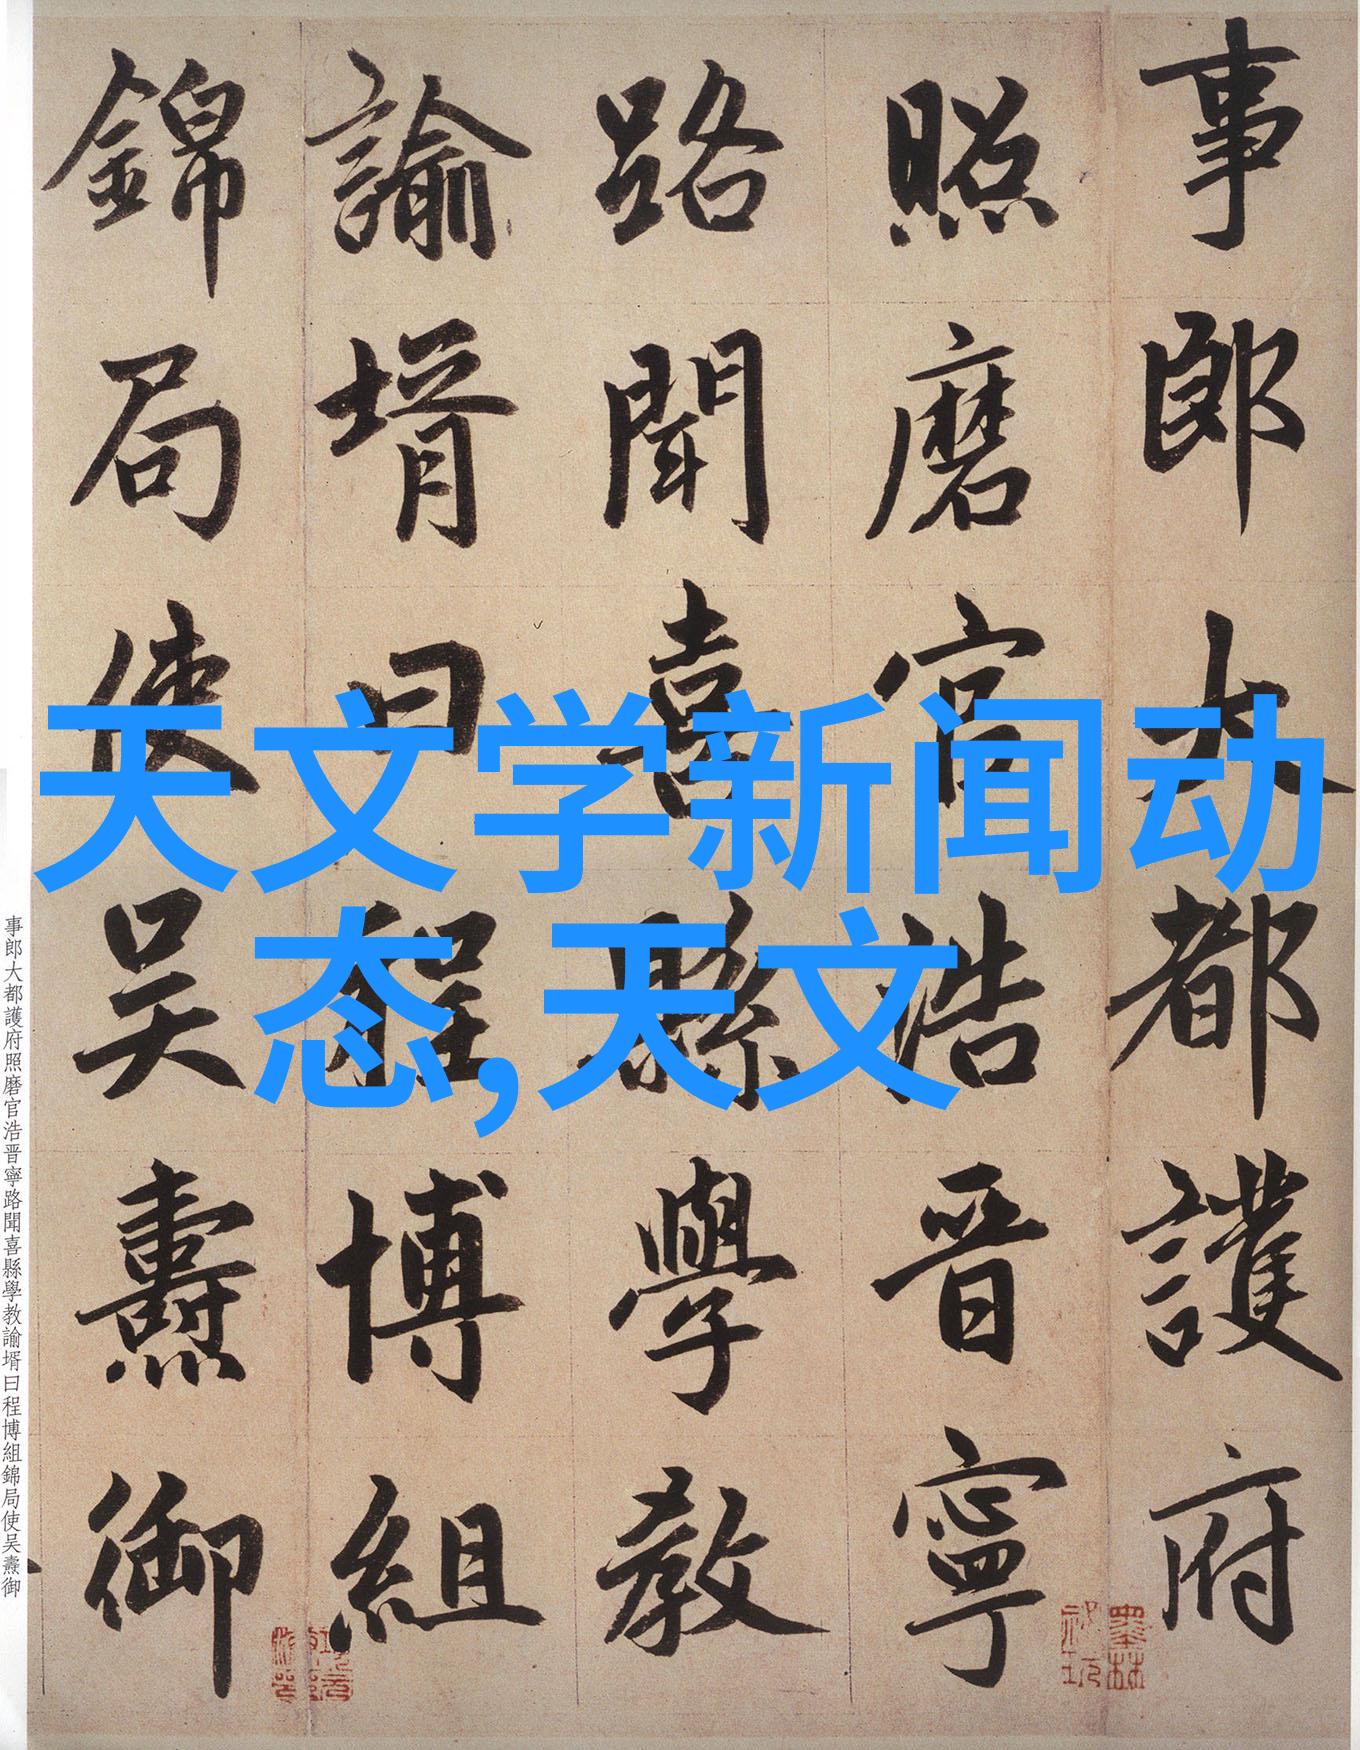 事郎大都護府
照磨官浩晋寧
路聞喜縣學教
諭壻曰程博組
錦局使吳燾御
天文学新闻动
态,天文
事郎大都護府照磨官浩晋寧路聞喜縣學教諭壻曰程博組錦局使吴燾御